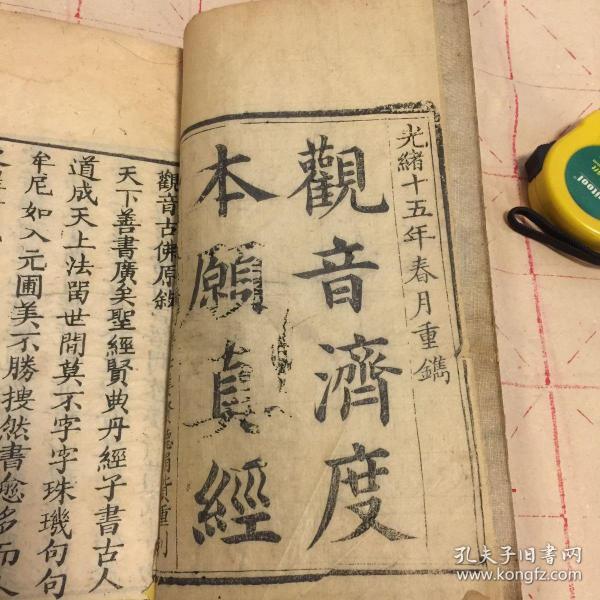 光緒十五年春月重鐫
觀音濟度
本願真經
重刊
觀音古佛原
天下善書廣矣聖經賢典丹經子書古人
道成天上法留世間莫不字字珠璣句句
牟尼如入元圃美不勝搜然書愈多而人
Qitool
孔夫子旧书网
www.kongfz.com